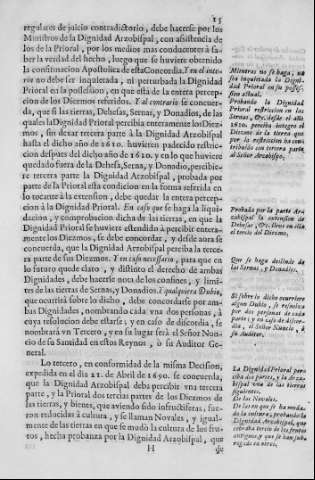 15
regulares de juicio contradictorio, debe hacerse por los
Ministros de la Dignidad Arzobispal, con asistencia de
los de la Prioral, por los medios mas conducentes à sa-
ber la verdad del hecho, luego que se huviere obtenido
la confirmacion Apostolica de esta Concordia. Y en el inte-
rin no debe ser inquietada, ni perturbada la Dignidad
Prioral en la possession, en que està de la entera percep-
cion de los Diezmos referidos. Y al contrario se concuer-
da, que si las tierras, Dehesas, Sernas, y Donadios, de las
quales la Dignidad Prioral percibia enteramente los Diez-
mos, sin dexar tercera parte à la Dignidad Arzobispal
hasta el dicho año de 1610. huvieren padecido restric-
cion despues del dicho año de 1610. y en lo que huviere
quedado fuera de la Dehesa, Serna, y Donadio, percibie-
re tercera parte la Dignidad Arzobispal, probada por
parte de la Prioral esta condicion en la forma referida en
lo tocante à la extension, debe quedar la entera percep-
cion à la Dignidad Prioral. En caso que se haga la liqui-
dacion, y comprobacion dicha de las tierras, en que la
Dignidad Prioral se huviere estendido à percibir entera-
mente los Diezmos, se debe concordar, y desde aora se
concuerda, que la Dignidad Arzobispal perciba la terce-
ra parte de sus Diezmos. Y en caso necessario, para que en
lo futuro quede claro, y distinto el derecho de ambas
Dignidades, debe hacerse nota de los confines, y limi-
tes de las tierras de Sernas, y Donadios. Y qualquiera Duda,
que ocurrirà sobre lo dicho, debe concordarse por am-
bas Dignidades, nombrando cada vna dos personas, à
cuya resolucion debe estarse; y en caso de discordia, se
nombrarà vn Tercero, y en su lugar serà el Señor Nun-
cio de su Santidad en estos Reynos, ò su Auditor Ge-
neral.
Lo tercero, en conformidad de la misma Decision,
expedida en el dia 21. de Abril de 1690. se concuerda,
que la Dignidad Arzobispal deba percibir vna tercera
parte, y la Prioral dos tercias partes de los Diezmos de
las tierras, y bienes, que aviendo sido infructiferas, fue-
ron reducidas à cultura, y se llaman Novales, y igual-
mente de las tierras en que se mudò la cultura de los fru-
tos, hecha probanza por la Dignidad Arzobispal, que
H
Mientras no se haga, no
sea inquietada la Digni-
dad Prioral en su posses-
sion actual.
Probando la Dignidad
Prioral restriccion en las
Sernas, &c. desde el año
1610. perciba integro el
Diezmo de la tierra que
por la restriccion ha con-
tribuido con tercera parte
al Señor Arzobispo.
Probada por la parte Arz
obispal la extension de
Dehesas, &c. lleve en ella
el tercio del Diezmo.
Que se haga deslinde de
las Sernas, y Donadios.
Si sobre lo dicho ocurriere
algun Duda, se resuelva
por dos personas de cada
parte; y en caso de discor-
dia, el Señor Nuncio, ò
su Auditor.
La Dignidad Prioral per-
ciba dos partes, y la Arzo-
bispal vna de las tierras
siguientes.
De los Novales.
De las en que se ha muda-
do la cultura, probando la
Dignidad Arzobispal, que